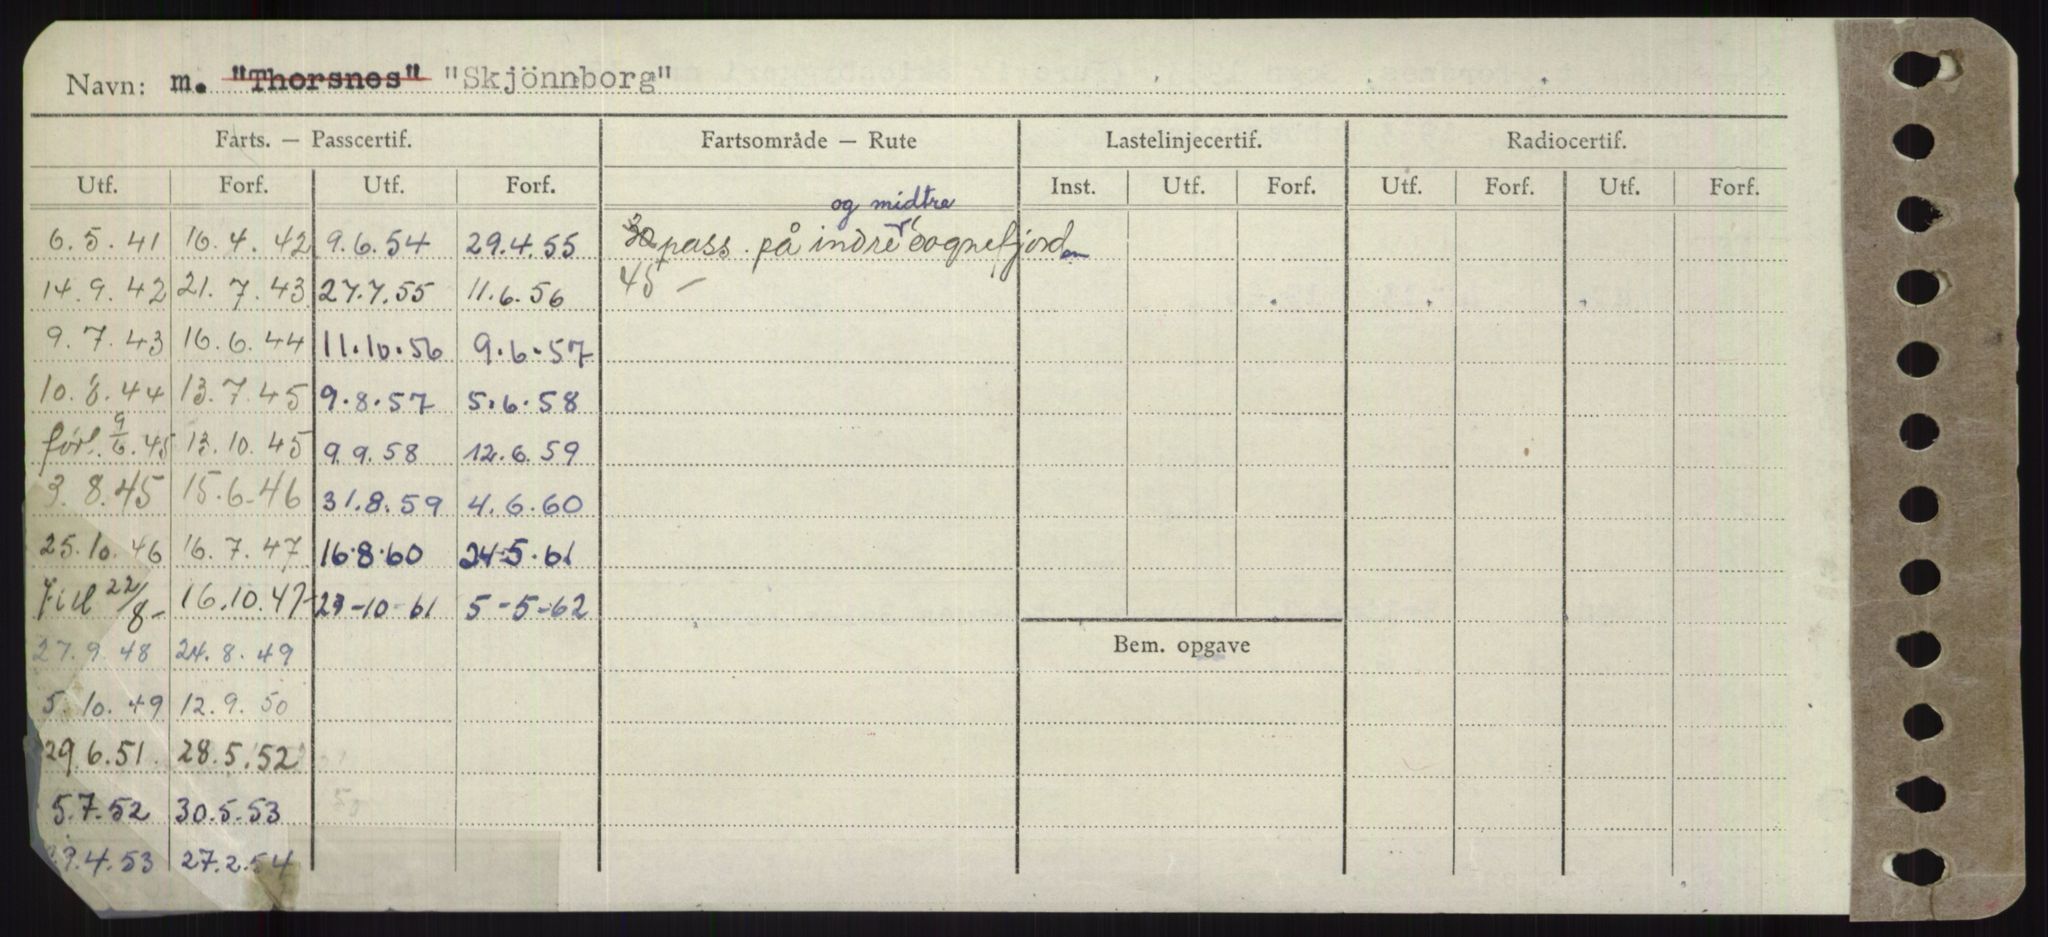 Navn: m. "Thorsnes" "Skjönnborg"
Farts. — Passcertif. Fartsområde — Rute Lastelinjecertif. Radiocertif.
Utf. Forf. Utf. Forf. Inst. Utf. Forf. Utf. Forf. Utf. Forf.
og midtre
6.5.41 16.4.42 9.6.54 29.4.55 30 pass. på indre Sognefjorden
14.9.42 21.7.43 27.7.55 11.6.56 45 —
9.7.43 16.6.44 11.10.56 9.6.57
10.8.44 13.7.45 9.8.57 5.6.58
forl. 9/6.45 13.10.45 9.9.58 12.6.59
3.8.45 15.6.46 31.8.59 4.6.60
25.10.46 16.7.47 16.8.60 24.5.61
22/8- 16.10.47 23-10-61 5-5-62
Bem. opgave
27.9.48 24.8.49
5.10.49 12.9.50
29.6.51. 28.5.52
5.7.52 30.5.53
4.53 27.2.54